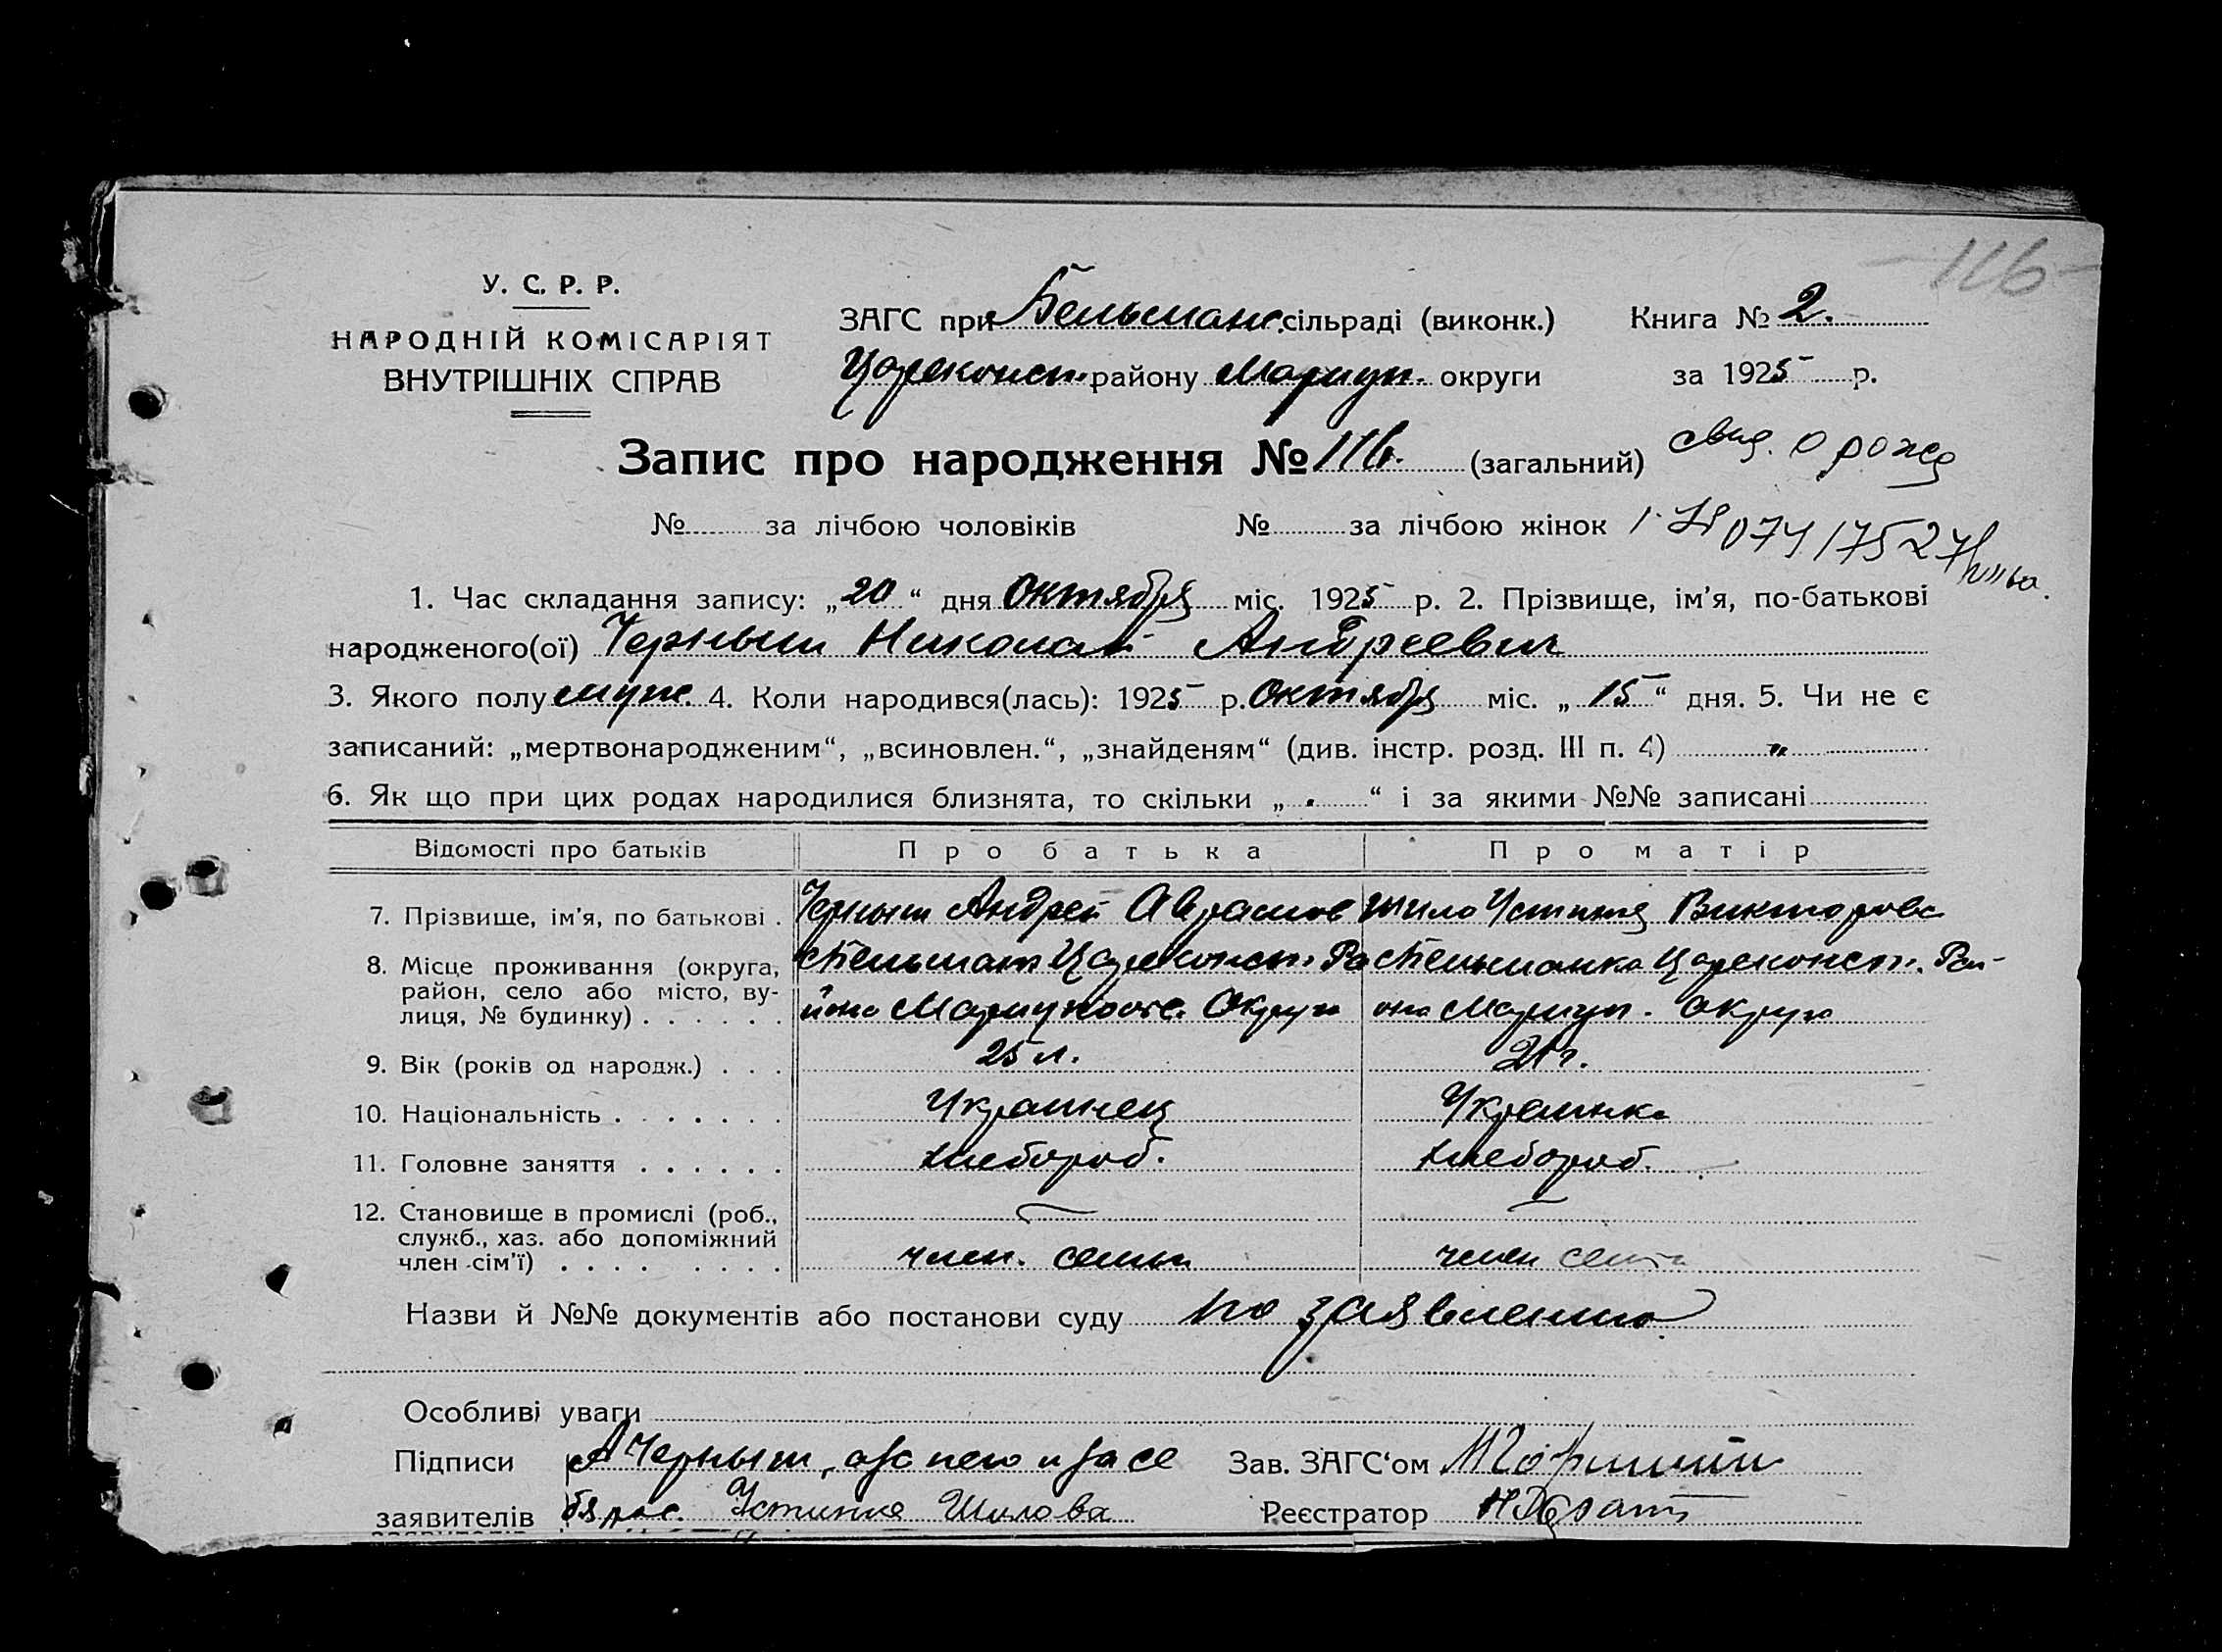 116
У. С. Р. Р.
НАРОДНІЙ КОМІСАРІЯТ
ВНУТРІШНІХ СПРАВ
ЗАГС при Бельманс. сільраді (виконк.) Книга № 2.
Цареконст. району Мариуп. округи за 1925 р.
Запис про народження № 116. (загальний)
свид. о рожд
№ за лічбою чоловіків № за лічбою жінок
1. Час складання запису: „20“ дня Октября міс. 1925 р. 2. Прізвище, ім’я, по-батькові
народженого(ої) Черныш Николай Андреевич
3. Якого полу муж. 4. Коли народився(лась): 1925 р. Октября міс. „15“ дня. 5. Чи не є
записаний: „мертвонародженим“, „всиновлен.“, „знайденям“ (див. інстр. розд. III п. 4) „
6. Як що при цих родах народилися близнята, то скільки „ “ і за якими №№ записані
Відомості про батьків Про батька Про матір
7. Прізвище, ім’я, по батькові . Черныш Андрей Аврамов Шило Устиния Викторовс
8. Місце проживання (округа, район, село або місто, вулиця, № будинку) . . . . . .
с Бельманк Цареконст. Ра
йона Мариупольс. Округа
с Бельманка Цареконст. Рай-
она Мариуп. Округа
9. Вік (років од народж.) . . . 25 л. 21 г.
10. Національність . . . . . . . Украинец Украинка
11. Головне заняття . . . . . . хлебороб. хлебороб.
12. Становище в промислі (роб.,
служб., хаз. або допоміжний
член сім’ї) . . . . . . . . член. семьи член семьи
Назви й №№ документів або постанови суду по заявлению
Особливі уваги
Підписи А Черныш, а за нею и за се Зав. ЗАГС‘ом
заявителів бя рас. Устиния Шилова Реєстратор